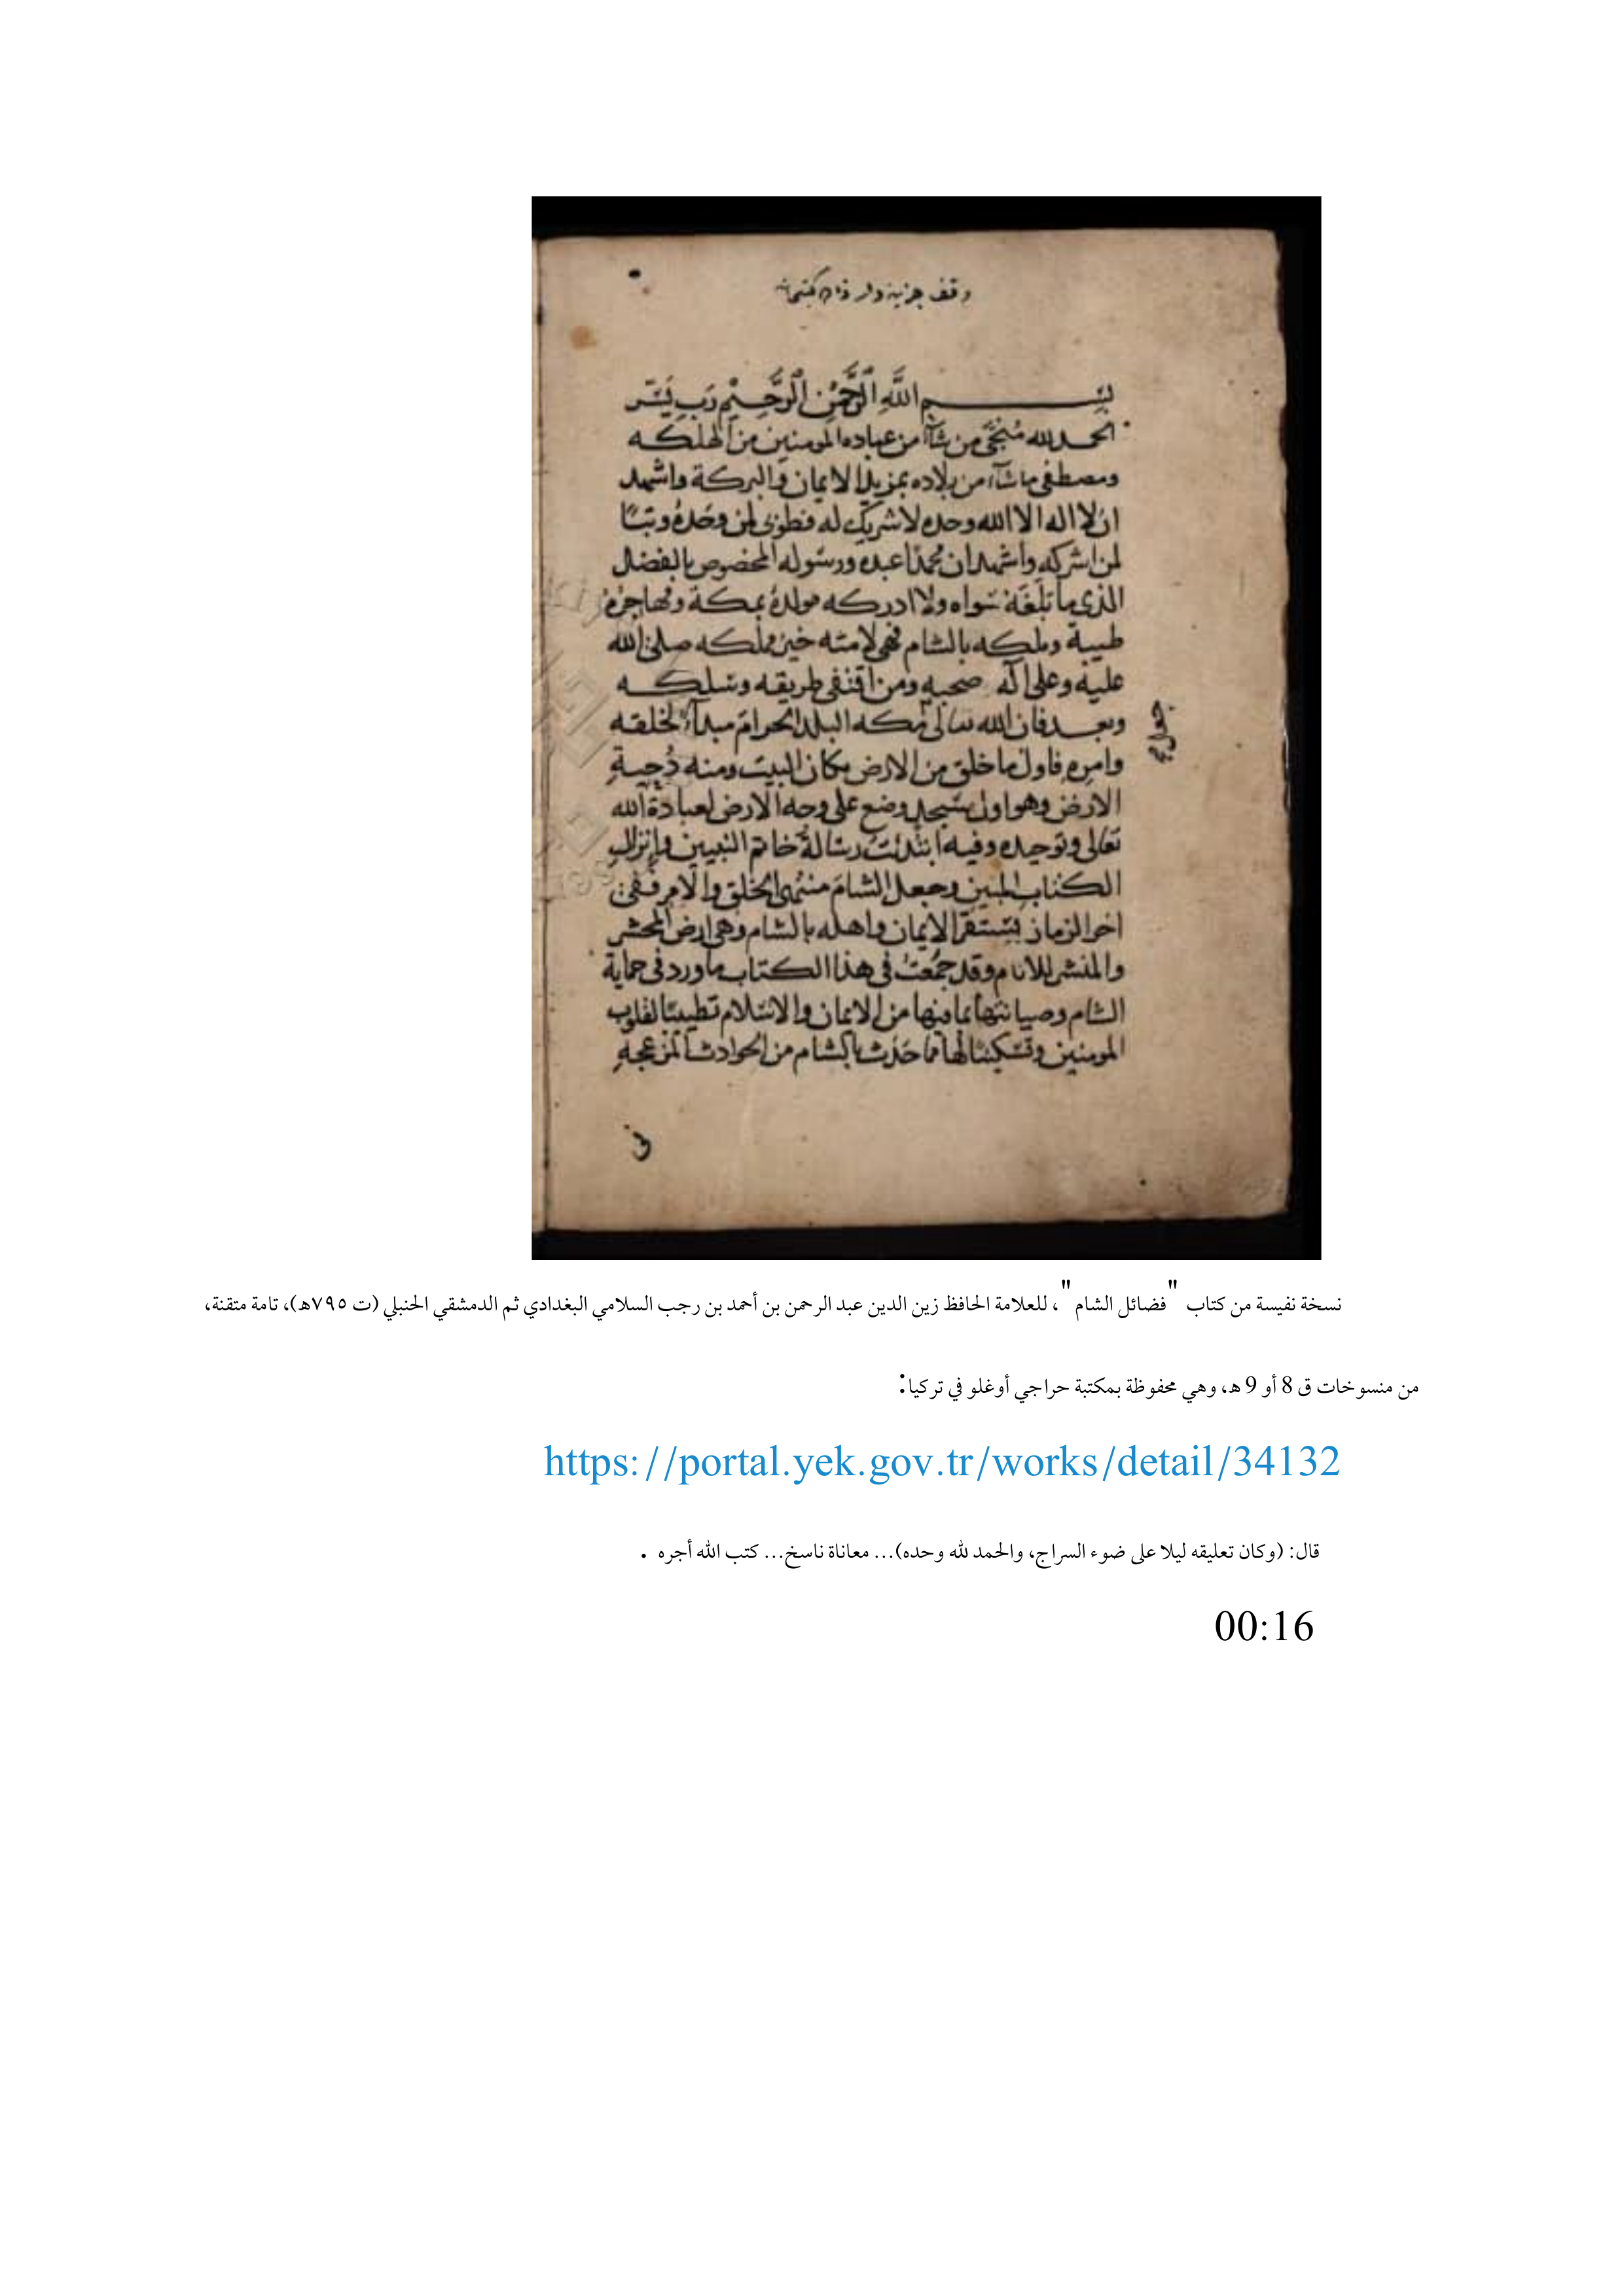 بسم الله الرحمن الرحيم رب يسر
الحمد لله منجي من شآء من عباده المومنين من الهلكه
ومصطفى ما شآء من بلاده بمزيد الايمان والبركة واشهد
ان لا اله الا الله وحده لا شريك له فطوبى لمن وحده وتبا
لمن اشركه واشهد ان محمدا عبده ورسوله المخصوص بالفضل
الذي ما بلغه سواه ولا ادركه مولده بمكة ومهاجره
طيبة وملكه بالشام فهي لامته خير مملكه صلى الله
عليه وعلى آله صحبه ومن اقتفى طريقه وسلكه
وبعد فان الله تعالى مكه البلد الحرام مبدأ لخلقه
وامره فاول ما خلق من الارض مكان البيت ومنه دحيت
الارض وهو اول مسجد وضع على وجه الارض لعبادة الله
تعالى وتوحيده وفيه ابتدئت رسالة خاتم النبيين وإنزال
الكتاب المبين وجعل الشام منتهى الخلق والامر ففي
اخر الزمان يستقر الايمان واهله بالشام وهي ارض المحشر
والمنشر للانام وقد جمعت في هذا الكتاب ما ورد في حماية
الشام وصيانتها بما فيها من الايمان والاسلام تطييبا لقلوب
المومنين وتسكينا لها مما حدث بالشام من الحوادث المزعجة
نسخة نفيسة من كتاب "فضائل الشام"، للعلامة الحافظ زين الدين عبد الرحمن بن أحمد بن رجب السلامي البغدادي ثم الدمشقي الحنبلي (ت ٧٩٥هـ)، تامة متقنة،
من منسوخات ق 8 أو 9 هـ، وهي محفوظة بمكتبة حراجي أوغلو في تركيا:
https://portal.yek.gov.tr/works/detail/34132
قال: (وكان تعليقه ليلا على ضوء السراج، والحمد لله وحده)... معاناة ناسخ... كتب الله أجره .
00:16